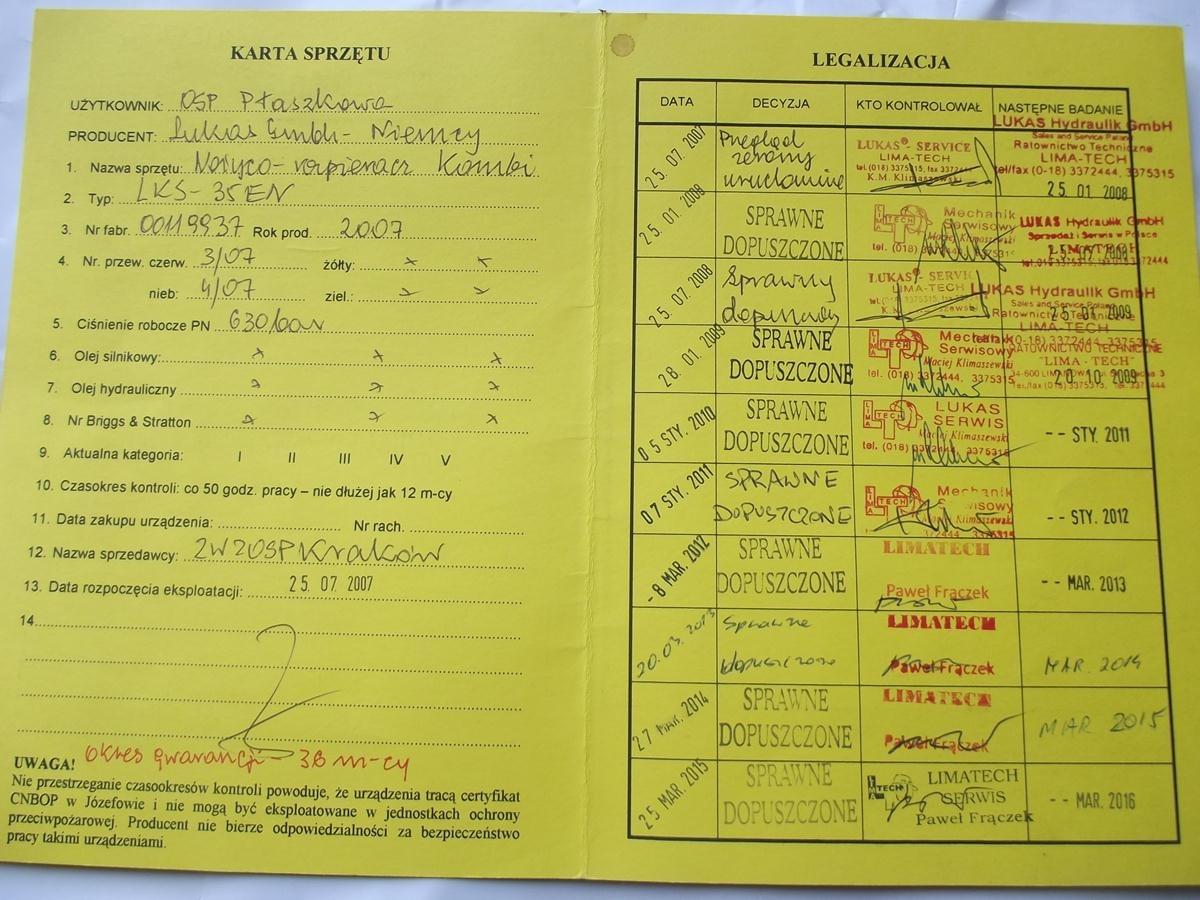 KARTA SPRZĘTU
UŻYTKOWNIK: OSP Ptaszkowa
PRODUCENT: Lukas Gmbh - Niemcy
1. Nazwa sprzętu: Kombi
2. Typ: LKS - 35 EN
3. Nr fabr. 00119937 Rok prod. 2007
4. Nr. przew. czerw. 3/07 żółty:
nieb: 4/07 ziel.:
5. Ciśnienie robocze PN 630 bar
6. Olej silnikowy:
7. Olej hydrauliczny
8. Nr Briggs & Stratton
9. Aktualna kategoria: I II III IV V
10. Czasokres kontroli: co 50 godz. pracy – nie dłużej jak 12 m-cy
11. Data zakupu urządzenia: Nr rach.
12. Nazwa sprzedawcy: ZW ZOSP Kraków
13. Data rozpoczęcia eksploatacji: 25. 07. 2007
14.
okres gwarancji - 36 m-cy
UWAGA!
Nie przestrzeganie czasookresów kontroli powoduje, że urządzenia tracą certyfikat
CNBOP w Józefowie i nie mogą być eksploatowane w jednostkach ochrony
przeciwpożarowej. Producent nie bierze odpowiedzialności za bezpieczeństwo
pracy takimi urządzeniami.
LEGALIZACJA
DATA DECYZJA KTO KONTROLOWAŁ NASTĘPNE BADANIE
LUKAS Hydraulik GmbH
Sales and Service Poland
Ratownictwo Techniczne
LIMA-TECH
tel/fax (0-18) 3372444, 3375315
25. 07. 2007
Przegląd
zerowy
uruchomienie
LUKAS® - SERVICE
LIMA-TECH
tel.(018) 3375315, fax 3372444
K.M. Klimaszewski
25. 01 2008
25. 01. 2008
SPRAWNE
DOPUSZCZONE
LIMA TECH
Mechanik
Serwisowy
Maciej Klimaszewski
LUKAS Hydraulik GmbH
Sprzedaż i Serwis w Polsce
25. 07. 2008
Sprawny
LUKAS® - SERVIC
LIMA-TECH
LUKAS Hydraulik GmbH
Sales and Service Poland
25 01 2009
Ratownictwo Techniczne
LIMA-TECH
28. 01. 2009
SPRAWNE
DOPUSZCZONE
LIMA TECH
Mechanik
Serwisowy
Maciej Klimaszewski
tel. (018) 3372444, 3375315
RATOWNICTWO TECHNICZNE
"LIMA - TECH"
20. 10. 2009
05 STY. 2010
SPRAWNE
DOPUSZCZONE
LIMA TECH
LUKAS
SERWIS
Maciej Klimaszewski
tel. (018) 3372444, 3375315
-- STY. 2011
07 STY. 2011
SPRAWNE
DOPUSZCZONE
LIMA TECH
Mechanik
Serwisowy
Klimaszewski
-- STY. 2012
-8 MAR. 2012
SPRAWNE
DOPUSZCZONE
LIMATECH
Paweł Frączek
-- MAR. 2013
20.03.2013
Sprawne
dopuszczone
LIMATECH
Paweł Frączek
MAR. 2014
27 MAR. 2014
SPRAWNE
DOPUSZCZONE
LIMATECH
Paweł Frączek
MAR 2015
25 MAR. 2015
SPRAWNE
DOPUSZCZONE
LIMA TECH
LIMATECH
SERWIS
Paweł Frączek
-- MAR. 2016